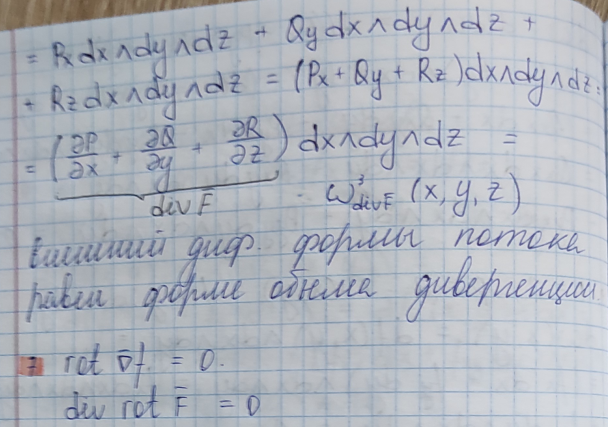 = Pxdx∧dy∧dz + Qydx∧dy∧dz +
+ Rzdx∧dy∧dz = (Px + Qy + Rz)dx∧dy∧dz =
= (∂P/∂x + ∂Q/∂y + ∂R/∂z) dx∧dy∧dz =
div F̄ ω³div F̄ (x, y, z)
внешний диф. формы потока
равен форме объема дивергенции
7 rot ∇̄f = 0.
div rot F̄ = 0